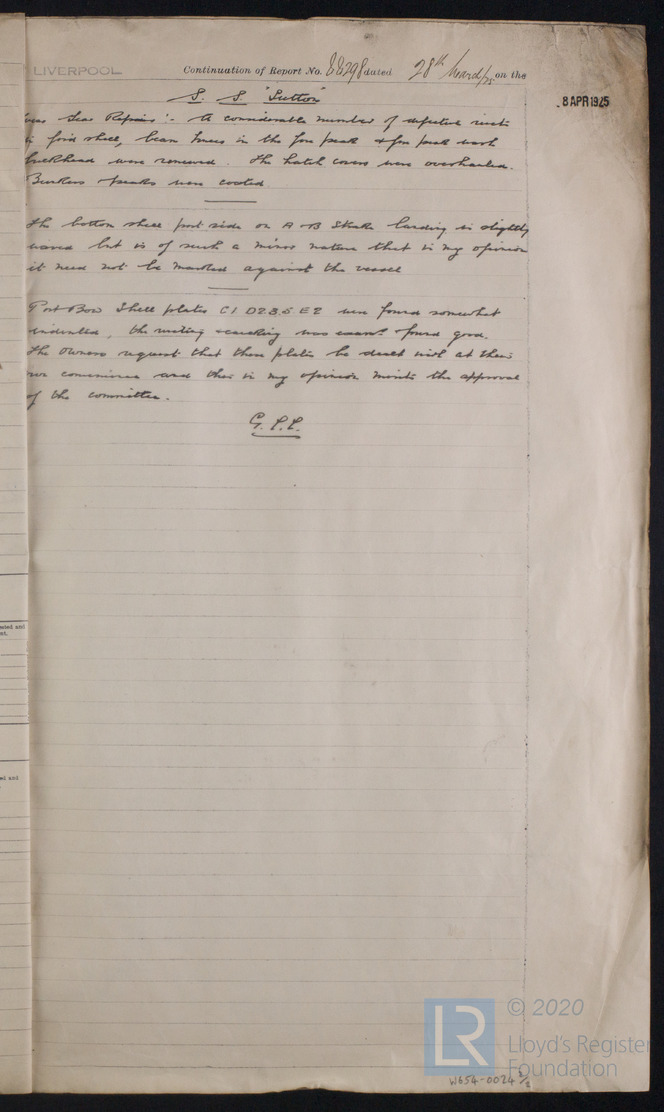 LIVERPOOL
Continuation of Report No. 88298 dated 28th March/25 on the
8 APR 1925
S. S. "Sutton"
Repairs :- A considerable number of defective rivets
in for'd shell, beam knees in the fore peak & fore peak wash
bulkhead were renewed. The hatch covers were overhauled.
Bunkers & peaks were coated
The bottom shell port side on A & B Strake landing is slightly
waved but is of such a minor nature that in my opinion
it need not be marked against the vessel
Port Bow Shell plates C1 D2 3,5 E2 were found somewhat
indented, the riveting & caulking was examd found good.
The owners request that these plates be dealt with at their
own convenience and this in my opinion merits the approval
of the committee.
ested and
nt.
ed and
© 2020
LR
Lloyd's Register
Foundation
W654-0024 2/2